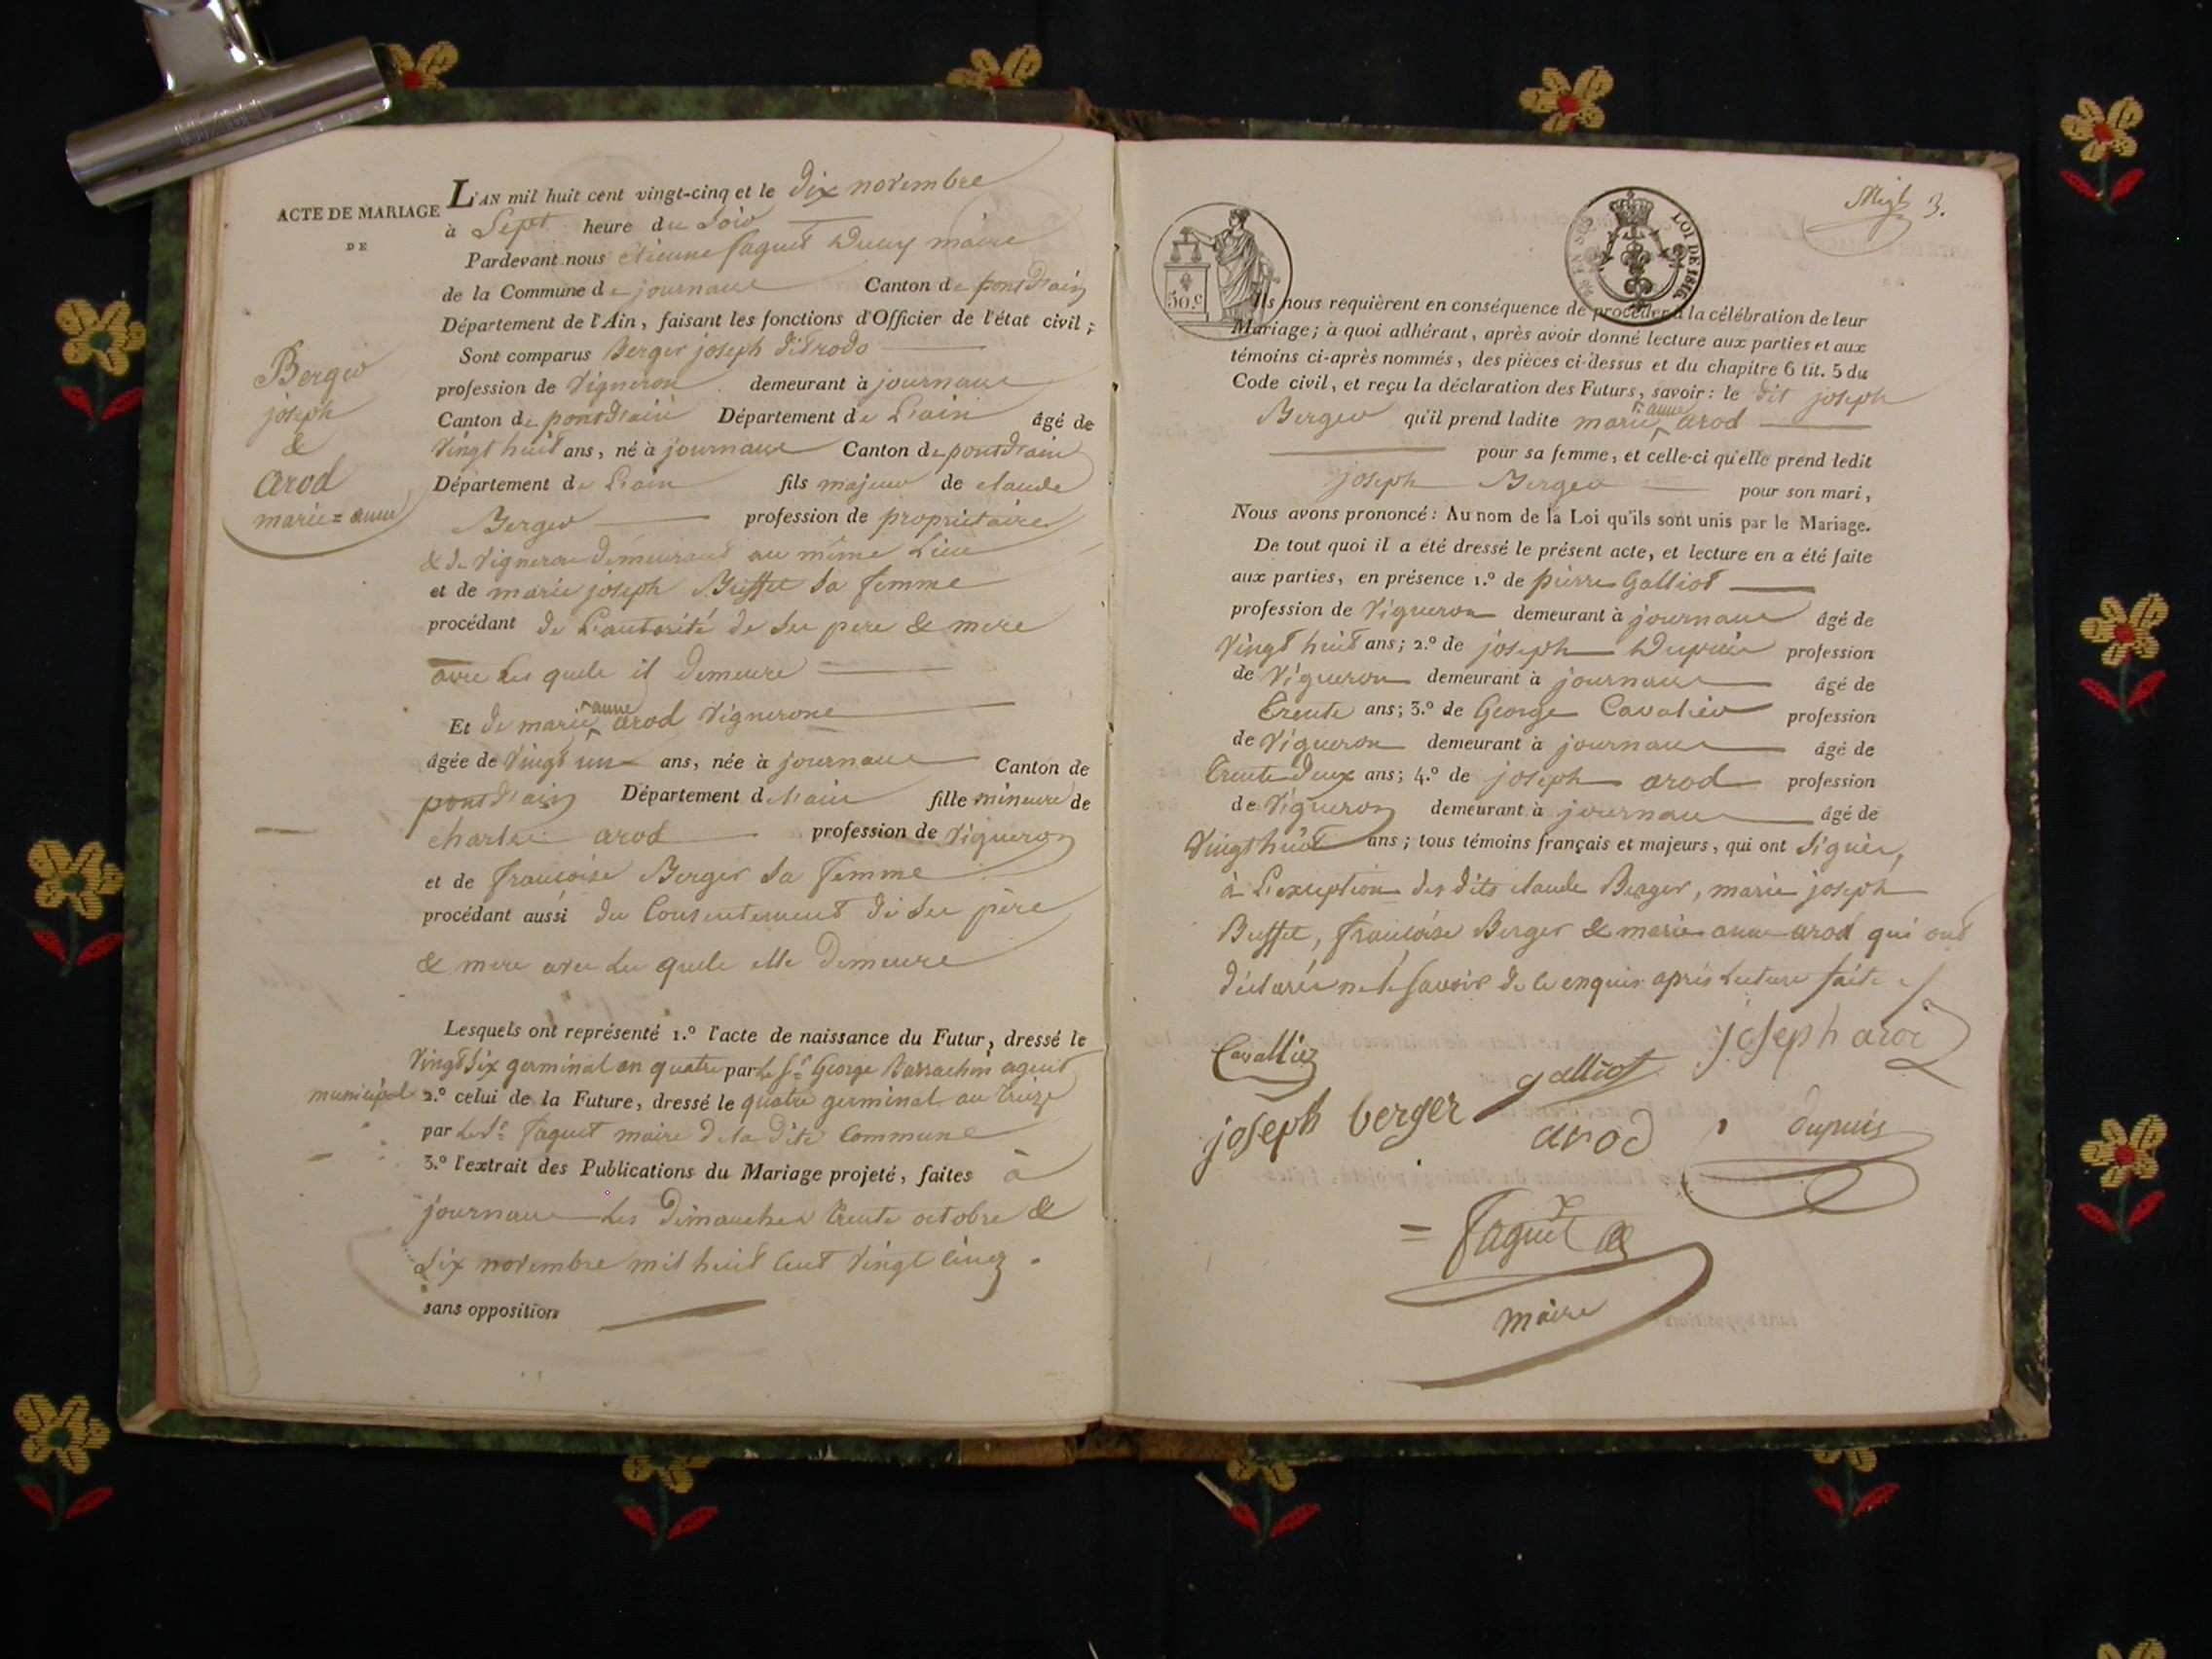 ACTE DE MARIAGE
DE
Berger
joseph
&
arod
marie=anne
L'AN mil huit cent vingt-cinq et le dix novembre
à Sept heure du Soir
Pardevant nous etienne faguet maire
de la Commune de journans Canton de pontd'ain
Département de l'Ain, faisant les fonctions d'Officier de l'état civil;
Sont comparus Berger joseph dit
profession de Vigneron demeurant à journans
Canton de pontd'ain Département de L'ain âgé de
Vingt huit ans, né à journans Canton de pontd'ain
Département de L'ain fils majeur de claude
Berger profession de propriétaire
& de Vigneron demeurant au même Lieu
et de marie joseph Buffet sa femme
procédant de L'autorité de ses pere & mere
avec les quels il demeure
Et de marie anne arod Vignerone
âgée de Vingt un ans, née à journans Canton de
pontd'ain Département de l'ain fille mineure de
charles arod profession de Vigneron
et de françoise Berger sa femme
procédant aussi du Consentement de ses père
& mere avec les quels elle demeure
Lesquels ont représenté 1.º l'acte de naissance du Futur, dressé le
Vingt six germinal an quatre par le Sr George Barrachin agent
municipal 2.º celui de la Future, dressé le quatre germinal an treize
par le Sr faguet maire de la dite Commune
3.º l'extrait des Publications du Mariage projeté, faites à
journans les dimanches trente octobre &
six novembre mil huit cent vingt cinq.
sans opposition
3.
50.c
LOI DE 1816.
Ils nous requièrent en conséquence de procéder à la célébration de leur
Mariage; à quoi adhérant, après avoir donné lecture aux parties et aux
témoins ci-après nommés, des pièces ci-dessus et du chapitre 6 tit. 5 du
Code civil, et reçu la déclaration des Futurs, savoir: le dit joseph
Berger qu'il prend ladite marie anne arod
pour sa femme, et celle-ci qu'elle prend ledit
joseph Berger pour son mari,
Nous avons prononcé: Au nom de la Loi qu'ils sont unis par le Mariage.
De tout quoi il a été dressé le présent acte, et lecture en a été faite
aux parties, en présence 1.º de pierre Galliot
profession de Vigneron demeurant à journans âgé de
Vingt huit ans; 2.º de joseph Dupuis profession
de Vigneron demeurant à journans âgé de
trente ans; 3.º de George Cavalier profession
de Vigneron demeurant à journans âgé de
trente deux ans; 4.º de joseph arod profession
de Vigneron demeurant à journans âgé de
Vingt huit ans; tous témoins français et majeurs, qui ont signés,
à L'exception des dits claude Berger, marie joseph
Buffet, françoise Berger & marie anne arod qui ont
déclarés ne le savoir de ce enquis après lecture faite
Cavallier
galliot
joseph arod
joseph berger
arod
dupuis
= faguet
maire